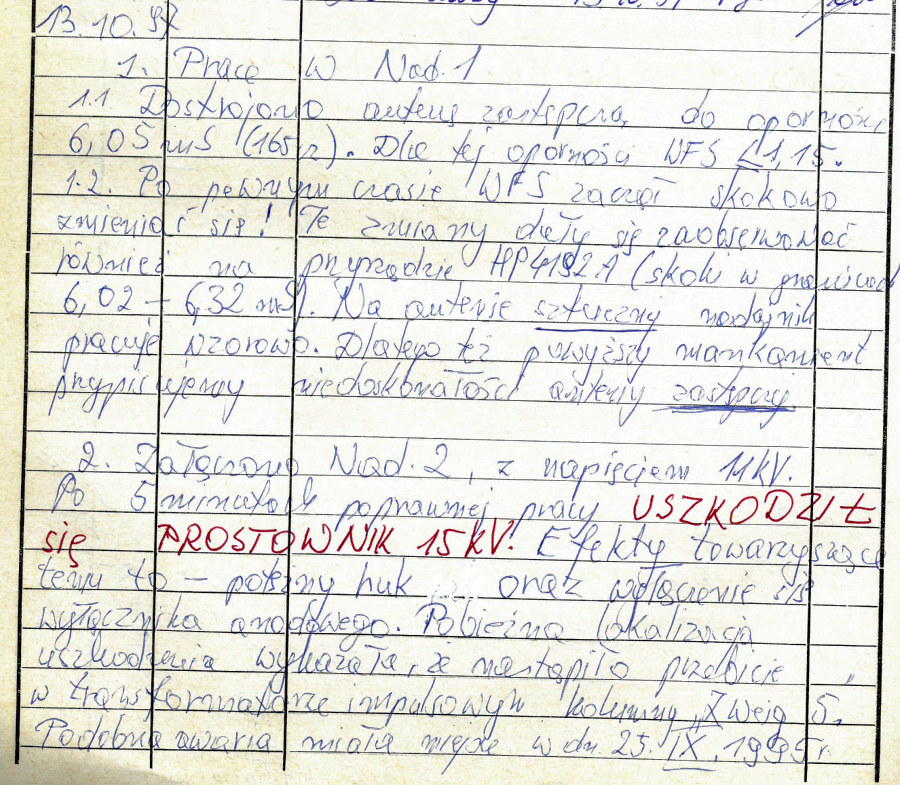 13.10.97
1. Pracę w Nad. 1
1.1. Dostrojono antenę zastępczą do oporności
6,05 mS (165 Ω). Dla tej oporności WFS ≤ 1,15.
1.2. Po pewnym czasie WFS zaczął skokowo
zmieniać się! Te zmiany dały się zaobserwować
również na przyrządzie HP4192A (skoki w granicach
6,02 – 6,32 mS). Na antenie sztucznej nadajnik
pracuje wzorowo. Dlatego też powyższy mankament
przypisujemy niedoskonałości anteny zastępczej.
2. Załączono Nad. 2, z napięciem 11kV.
Po 5 minutach poprawnej pracy USZKODZIŁ
się PROSTOWNIK 15kV! Efekty towarzyszące
temu to – potężny huk oraz wyłączenie się
wyłącznika anodowego. Pobieżna lokalizacja
uszkodzenia wykazała, że nastąpiło przebicie
w transformatorze impulsowym kolumny "Zweig 5"
Podobna awaria miała miejsce w dn. 25. IX. 1995r.